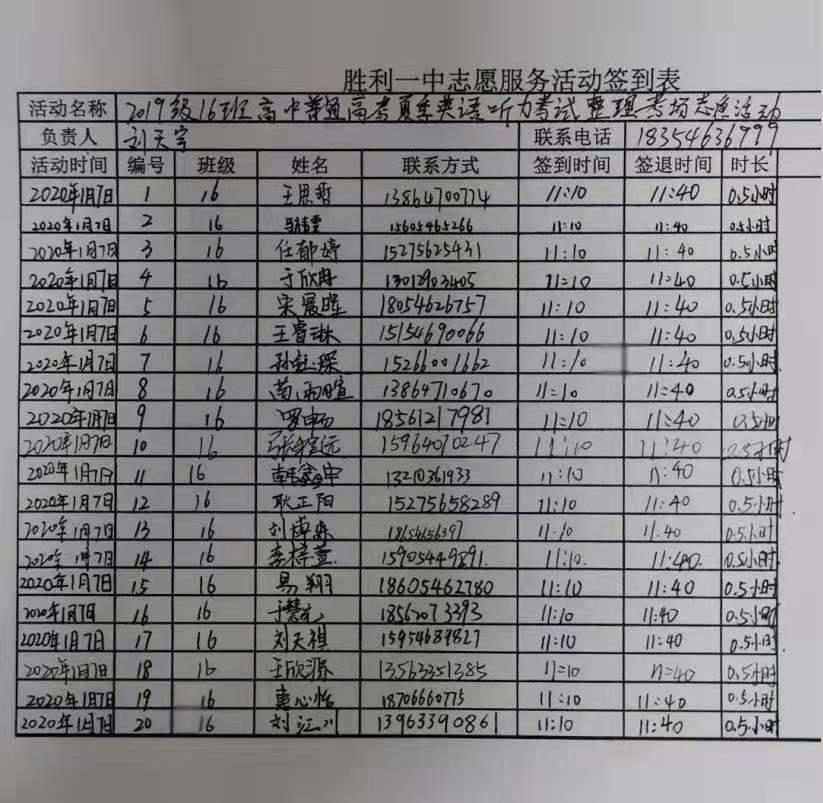 胜利一中志愿服务活动签到表
活动名称 2019级16班高中普通高考夏季英语听力考试整理考场志愿活动
负责人 刘天宇 联系电话 18354636999
活动时间 编号 班级 姓名 联系方式 签到时间 签退时间 时长
2020年1月7日 1 16 王思哲 13864700774 11:10 11:40 0.5小时
2020年1月7日 2 16 15605465266 11:10 11:40 0.5小时
2020年1月7日 3 16 任郁婷 15275625431 11:10 11:40 0.5小时
2020年1月7日 4 16 于欣冉 13012903405 11:10 11:40 0.5小时
2020年1月7日 5 16 宋晨晖 18054626757 11:10 11:40 0.5小时
2020年1月7日 6 16 王睿琳 15154690066 11:10 11:40 0.5小时
2020年1月7日 7 16 孙钰琛 15266001662 11:10 11:40 0.5小时
2020年1月7日 8 16 苗雨暄 13864710670 11:10 11:40 0.5小时
2020年1月7日 9 16 罗畅 18561217981 11:10 11:40 0.5小时
2020年1月7日 10 16 15964070247 11:10 11:40 0.5小时
2020年1月7日 11 16 13210361933 11:10 11:40 0.5小时
2020年1月7日 12 16 耿正阳 15275658289 11:10 11:40 0.5小时
2020年1月7日 13 16 18654656397 11:10 11:40 0.5小时
2020年1月7日 14 16 李梓萱 15905449891 11:10 11:40 0.5小时
2020年1月7日 15 16 易翔 18605462780 11:10 11:40 0.5小时
2020年1月7日 16 16 18562073393 11:10 11:40 0.5小时
2020年1月7日 17 16 刘天祺 15954689827 11:10 11:40 0.5小时
2020年1月7日 18 16 王欣源 13563351385 11:10 11:40 0.5小时
2020年1月7日 19 16 惠心怡 18706660775 11:10 11:40 0.5小时
2020年1月7日 20 16 刘江川 13963390861 11:10 11:40 0.5小时